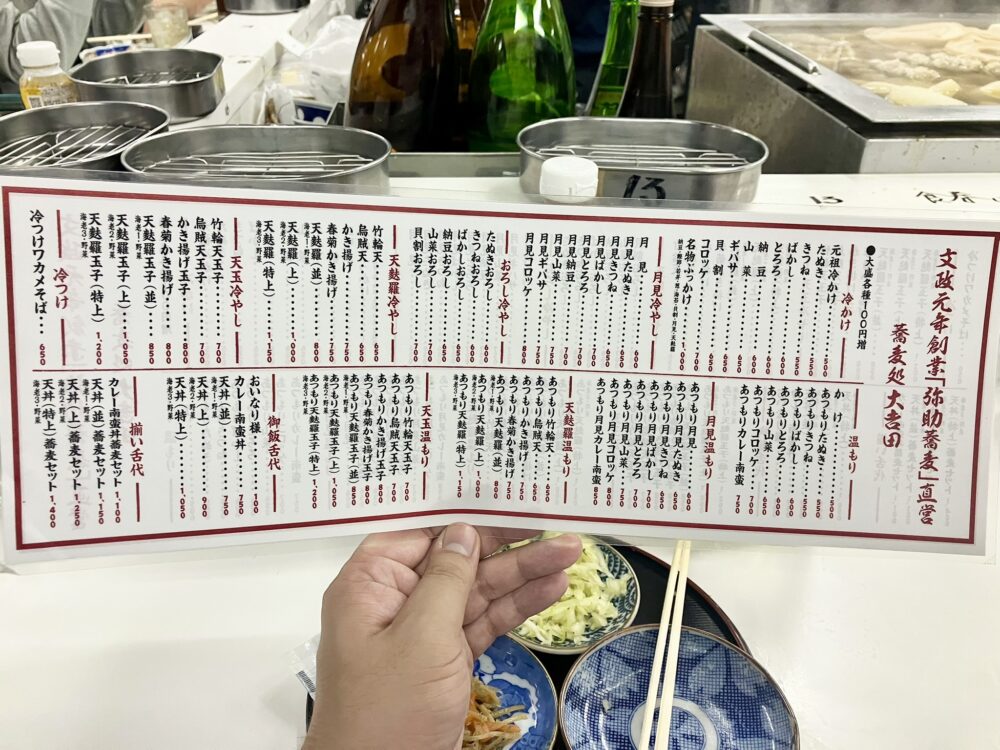 文政元年創業「弥助蕎麦」直営
蕎麦処 大吉田
●大盛各種100円増
冷かけ
元祖冷かけ 500
たぬき 550
きつね 550
ばかし 600
とろろ 600
納豆 600
山菜 600
ギバサ 650
貝割 650
コロッケ 700
名物ぶっかけ 1,000
月見冷やし
月見 600
月見たぬき 650
月見きつね 650
月見ばかし 700
月見とろろ 700
月見納豆 700
月見山菜 700
月見ギバサ 750
月見コロッケ 800
おろし冷やし
たぬきおろし
きつねおろし
ばかしおろし
納豆おろし
山菜おろし 700
貝割おろし 700
天麩羅冷やし
竹輪天 650
烏賊天 650
かき揚げ 750
春菊かき揚げ 750
天麩羅(並) 800
海老1・野菜
天麩羅(上) 1,000
海老2・野菜
天麩羅(特上) 1,150
海老3・野菜
天玉冷やし
竹輪天玉子 700
烏賊天玉子 700
かき揚げ玉子 800
春菊かき揚げ玉子 800
天麩羅玉子(並) 850
海老1・野菜
天麩羅玉子(上) 1,050
海老2・野菜
天麩羅玉子(特上) 1,200
海老3・野菜
冷つけ
冷つけワカメそば 650
温もり
かけ 500
あつもりたぬき 550
あつもりきつね 550
あつもりばかし 600
あつもりとろろ 600
あつもり山菜 650
あつもりコロッケ 700
あつもりカレー南蛮 700
月見温もり
あつもり月見 600
あつもり月見たぬき 650
あつもり月見きつね 650
あつもり月見ばかし 700
あつもり月見とろろ 700
あつもり月見山菜 750
あつもり月見コロッケ 800
あつもり月見カレー南蛮 850
天麩羅温もり
あつもり竹輪天 650
あつもり烏賊天 650
あつもりかき揚げ 750
あつもり春菊かき揚げ 750
あつもり天麩羅(並) 800
海老1・野菜
あつもり天麩羅(上) 1,000
海老2・野菜
あつもり天麩羅(特上) 1,150
海老3・野菜
天玉温もり
あつもり竹輪天玉子 700
あつもり烏賊天玉子 700
あつもりかき揚げ玉子 800
あつもり春菊かき揚げ玉子 800
あつもり天麩羅玉子(並) 850
海老1・野菜
あつもり天麩羅玉子(上) 1,050
海老2・野菜
あつもり天麩羅玉子(特上) 1,200
海老3・野菜
御飯舌代
おいなり様 100
カレー南蛮丼 750
天丼(並) 750
海老1・野菜
天丼(上) 900
海老2・野菜
天丼(特上) 1,050
海老3・野菜
揃い舌代
カレー南蛮丼蕎麦セット 1,100
天丼(並)蕎麦セット 1,150
海老1・野菜
天丼(上)蕎麦セット 1,250
海老2・野菜
天丼(特上)蕎麦セット 1,400
海老3・野菜
13
13